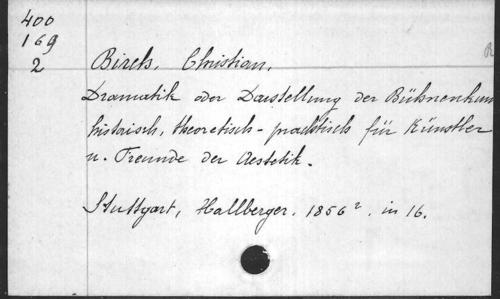 400
169
2
Birch, Christian.
Dramatik oder Darstellung der Bühnenkun
historisch, theoretisch-praktisch für Künstler
u. Freunde der Aestetik.
Stuttgart, Hallberger. 1856². in 16.